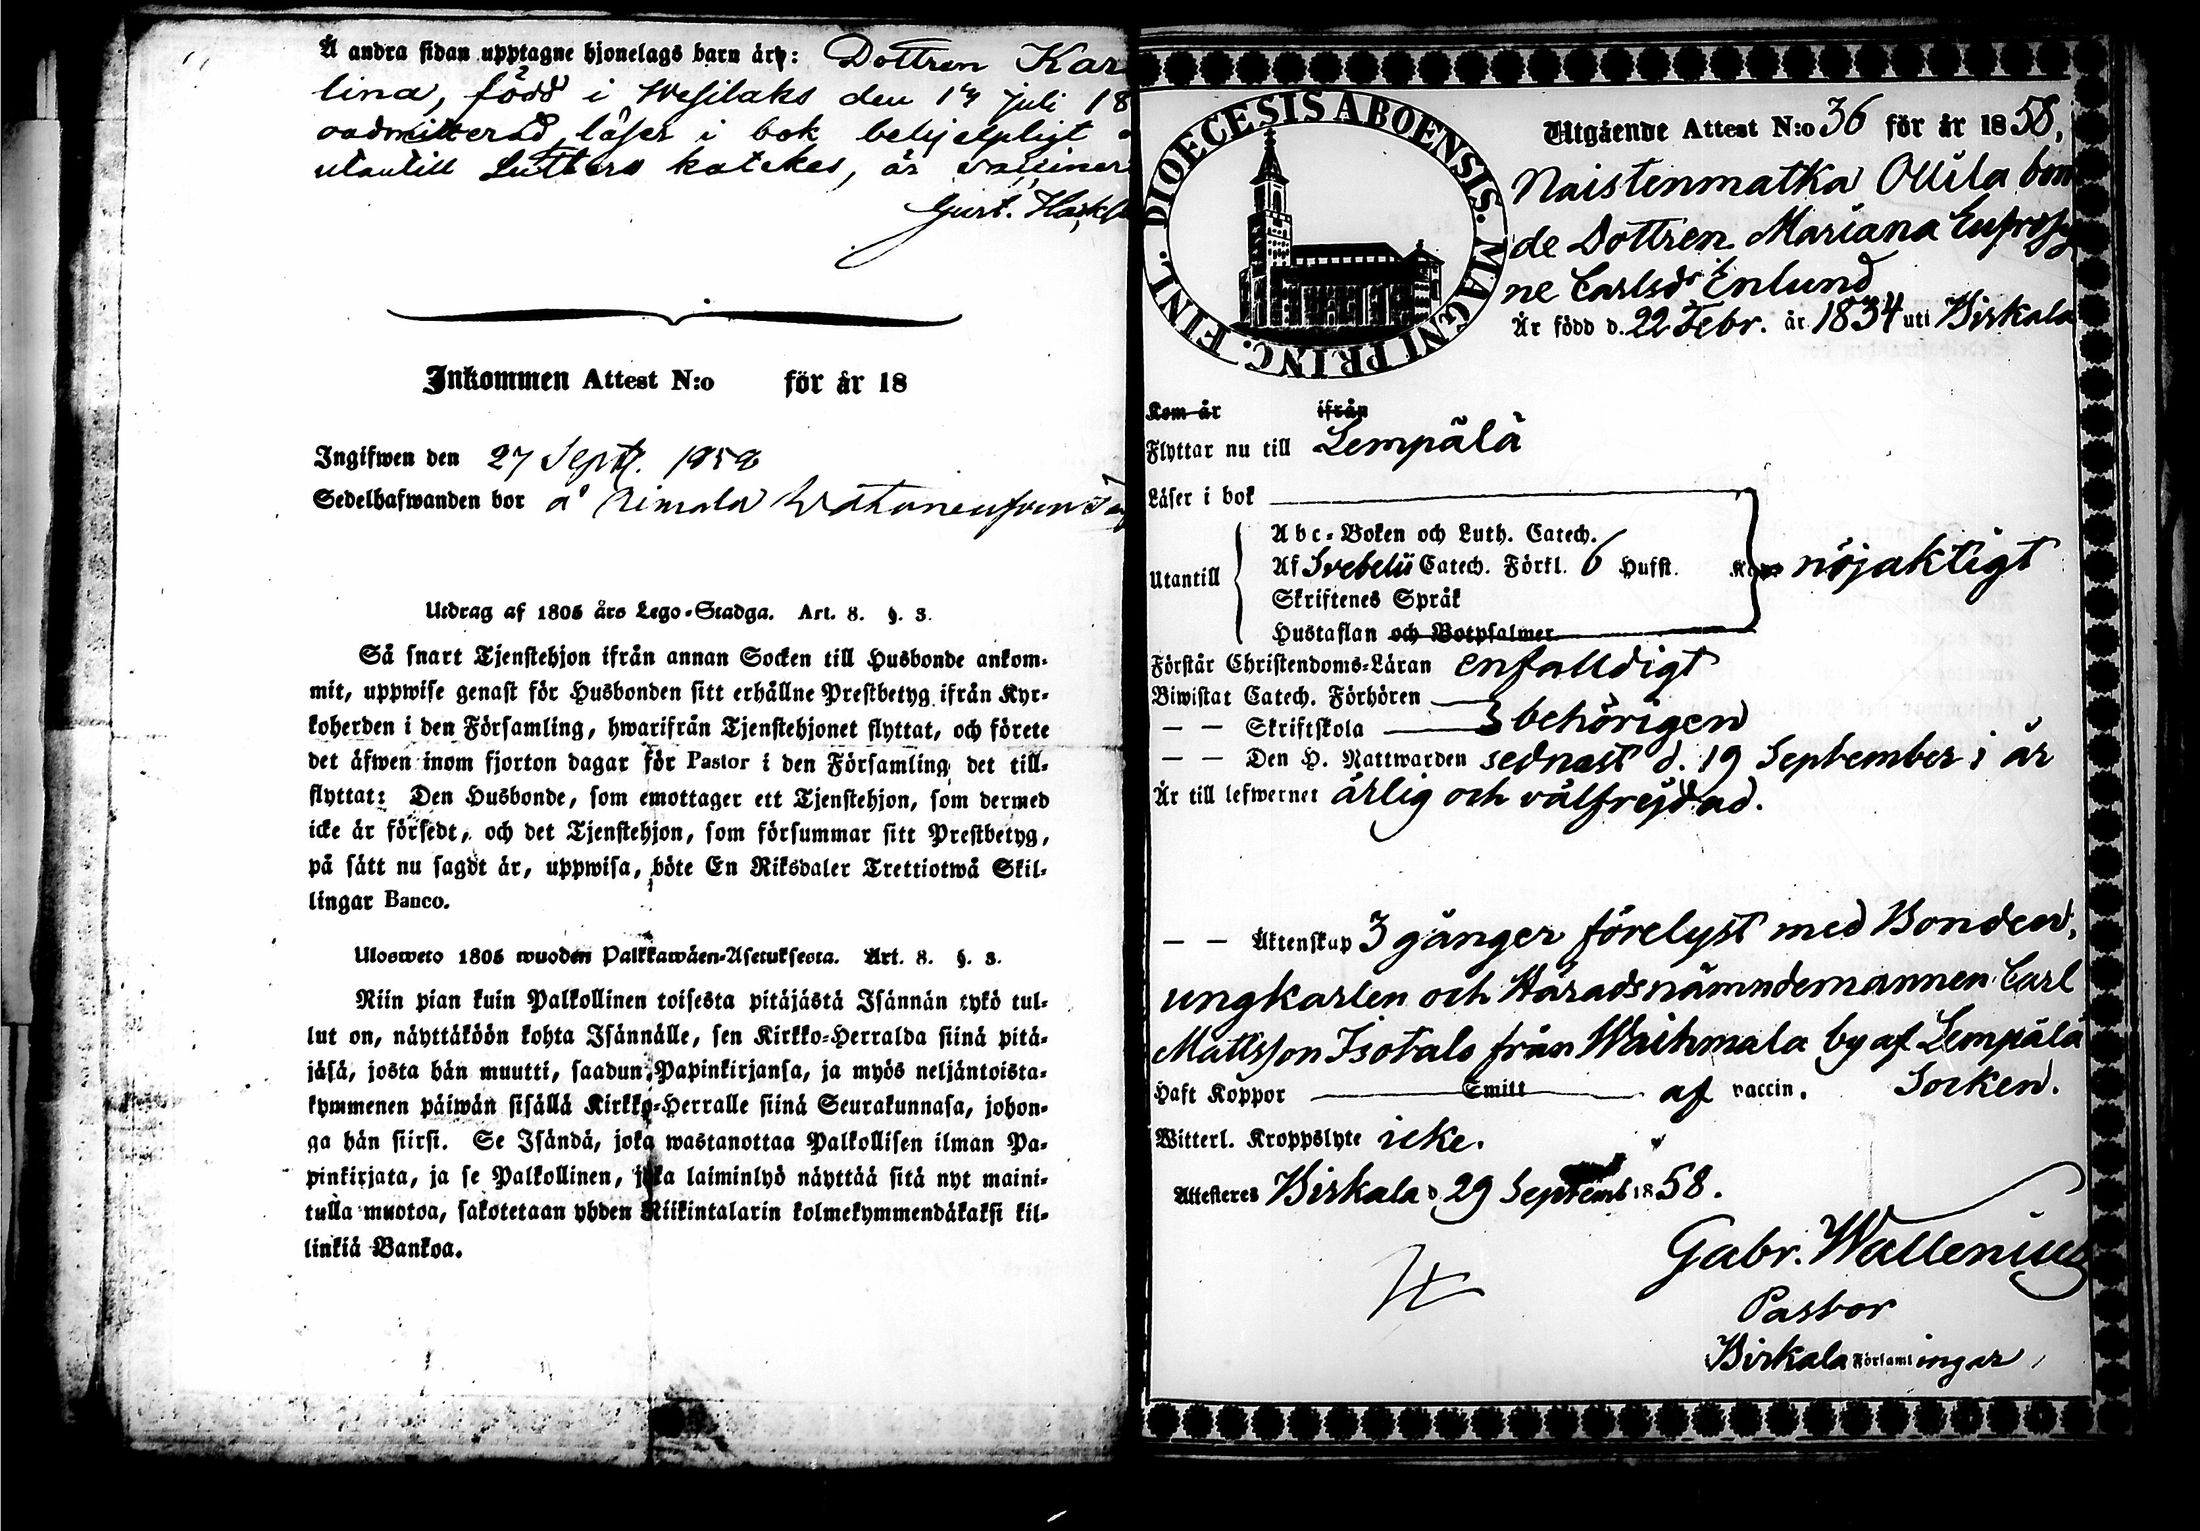 Å andra sidan upptagne hjonelags barn äro: Dottren Kar
lina, född i Wesilaks den 14 juli 18
oadmitterad, läser i bok behjelpligt
utantill Luthers katekes, är vacciner
Gust.
Inkommen Attest N:o för år 18
Ingifwen den 27 Sept. 1858
Sedelhafwanden bor å
Utdrag af 1805 års Lego-Stadga. Art. 8. §. 3.
Så snart Tjenstehjon ifrån annan Socken till Husbonde ankom-
mit, uppwise genast för Husbonden sitt erhållne Prestbetyg ifrån Kyr-
koherden i den Församling, hwarifrån Tjenstehjonet flyttat, och förete
det äfwen inom fjorton dagar för Pastor i den Församling det till-
flyttat: Den Husbonde, som emottager ett Tjenstehjon, som dermed
icke är försedt, och det Tjenstehjon, som försummar sitt Prestbetyg,
på sätt nu sagdt är, uppwisa, böte En Riksdaler Trettiotwå Skil-
lingar Banco.
Ulosweto 1805 wuoden Palkkawäen-Asetuksesta. Art. 8. §. 3.
Niin pian kuin Palkollinen toisesta pitäjästä Isännän tykö tul-
lut on, näyttäköön kohta Isännälle, sen Kirkko-Herralda siinä pitä-
jäsä, josta hän muutti, saadun Papinkirjansa, ja myös neljäntoista-
kymmenen päiwän sisällä Kirkko-Herralle siinä Seurakunnasa, johon-
ga hän siirsi. Se Isändä, joka wastanottaa Palkollisen ilman Pa-
pinkirjata, ja se Palkollinen, joka laiminlyö näyttää sitä nyt maini-
tulla muotoa, sakotetaan yhden Riikintalarin kolmekymmendäkaksi kil-
linkiä Bankoa.
DIOECESIS ABOENSIS. MAGNI PRINC. FINL.
Utgående Attest N:o 36 för år 1858,
Naistenmatka Ollila bon
de Dottren Mariana Eufrosy
ne Carlsdr Enlund
Är född d. 22 Febr. år 1834 uti Birkala
Kom år ifrån
Flyttar nu till Lempälä
Läser i bok
Utantill
Abc-Boken och Luth. Catech.
Af Svebelii Catech. Förkl. 6 Hufst. nöjaktigt
Skriftenes Språk
Hustaflan och Botpsalmer
Förstår Christendoms-Läran enfalldigt
Biwistat Catech. Förhören
— — Skriftskola behörigen
— — Den H. Nattwarden sednast d. 19 September i år
Är till lefwernet ärlig och välfrejdad.
— — Äktenskap 3 gånger förelyst med Bonden,
ungkarlen och Häradsnämndemannen Carl
Mattsson Isotalo från Waihmala by af Lempälä
Socken.
Haft Koppor Smitt af vaccin.
Witterl. Kroppslyte icke.
Attesteres Birkala d. 29 Septemb 1858.
Gabr. Wallenius
Pastor
Birkala Församlingar